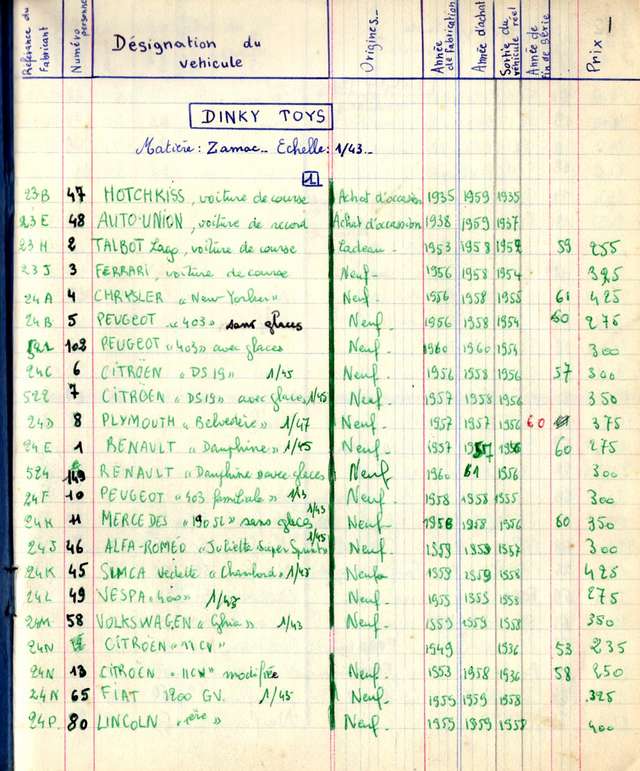 Référence du Fabricant Numéro personnel Désignation du véhicule Origines Année de fabrication Année d'achat Sortie du véhicule réel Année de fin de série Prix 1
DINKY TOYS
Matière: Zamac. Echelle: 1/43
1
23B 47 HOTCHKISS, voiture de course Achat d'occasion 1935 1959 1935
23E 48 AUTO-UNION, voiture de record Achat d'occasion 1938 1959 1937
23H 2 TALBOT Lago, voiture de course Cadeau 1953 1958 1952 59 255
23J 3 FERRARI, voiture de course Neuf 1956 1958 1954 325
24A 4 CHRYSLER "New Yorker" Neuf 1956 1958 1955 61 425
24B 5 PEUGEOT "403" sans glaces Neuf 1956 1958 1954 60 275
102 PEUGEOT "403" avec glaces Neuf 1960 1960 1954 300
24C 6 CITROËN "DS19" 1/45 Neuf 1956 1958 1956 57 300
522 7 CITROËN "DS19" avec glaces 1/45 Neuf 1957 1958 1956 350
24D 8 PLYMOUTH "Belvedère" 1/47 Neuf 1957 1957 1956 60 375
24E 1 RENAULT "Dauphine" 1/45 Neuf 1957 1957 1956 60 275
524 149 RENAULT "Dauphine" avec glaces Neuf 1960 61 1956 300
24F 10 PEUGEOT "403 familiale" 1/43 Neuf 1958 1958 1955 300
24H 11 MERCEDES "190 SL" sans glaces 1/43 Neuf 1958 1958 1956 60 350
24J 46 ALFA-ROMÉO "Juliette Super Sprint" 1/45 Neuf 1959 1959 1957 300
24K 45 SIMCA Vedette "Chambord" 1/43 Neuf 1959 1959 1958 425
24L 49 VESPA "400" 1/43 Neuf 1959 1959 1958 275
24M 58 VOLKSWAGEN "Ghia" 1/43 Neuf 1959 1959 1958 350
24N CITROËN "11 CV" 1949 1936 53 235
24N 13 CITROËN "11 CV" modifiée Neuf 1953 1958 1936 58 250
24N 65 FIAT 1200 GV. 1/45 Neuf 1959 1959 1958 325
24P 80 LINCOLN "1ère" Neuf 1959 1959 1958 400